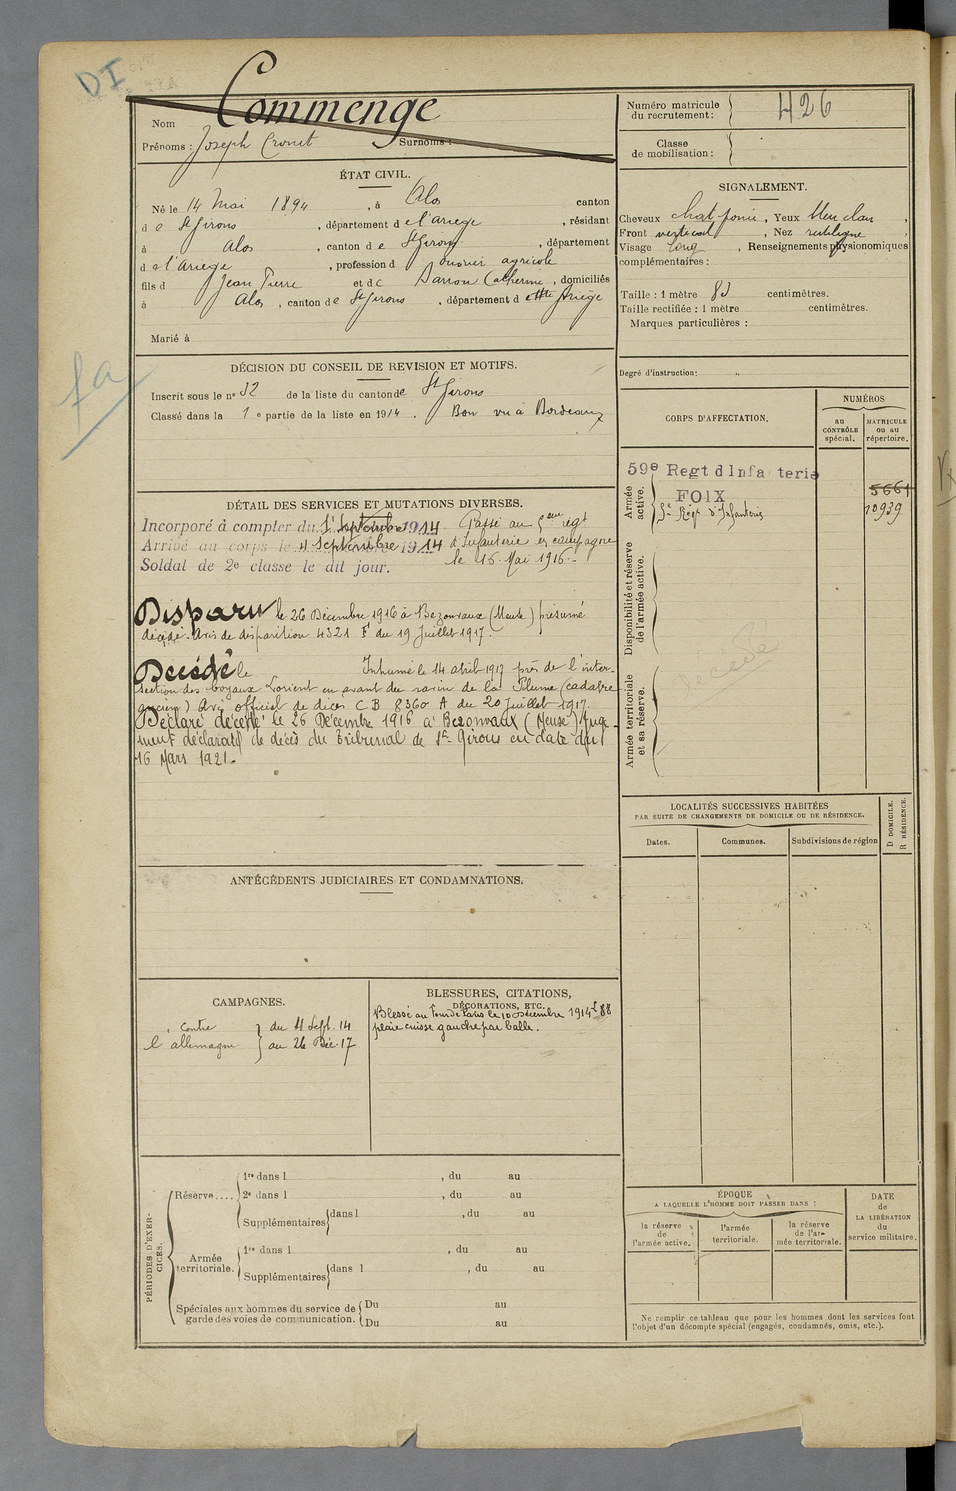 DI
Nom Commenge
Numéro matricule du recrutement : 426
Prénoms : Joseph Surnoms :
Classe de mobilisation :
ÉTAT CIVIL.
Né le 14 Mai 1894, à Alos canton
de St Girons, département de l'Ariège, résidant
à Alos, canton de St Girons, département
de l'Ariège, profession d ouvrier agricole
fils d Jean Pierre et de Catherine, domiciliés
à Alos, canton de St Girons, département d Ariège
Marié à
SIGNALEMENT.
Cheveux chat foncé, Yeux bleu clair,
Front vertical, Nez rectiligne,
Visage long, Renseignements physionomiques
complémentaires :
Taille : 1 mètre centimètres.
Taille rectifiée : 1 mètre centimètres.
Marques particulières :
Degré d'instruction :
fa
DÉCISION DU CONSEIL DE REVISION ET MOTIFS.
Inscrit sous le n° 52 de la liste du canton de St Girons
Classé dans la 1e partie de la liste en 1914. Bon vu à Bordeaux
CORPS D'AFFECTATION.
NUMÉROS
au CONTRÔLE spécial.
MATRICULE ou au répertoire.
Armée active.
59e Regt d'Infanterie
FOIX
5661
5e Régt d'Infanterie
10939
Disponibilité et réserve de l'armée active.
Décédé
Armée territoriale et sa réserve.
DÉTAIL DES SERVICES ET MUTATIONS DIVERSES.
Incorporé à compter du 1er Septembre 1914
Arrivé au corps le 4 Septembre 1914
Soldat de 2e classe le dit jour.
Passé au 5eme régt
d'Infanterie en campagne
le 16 Mai 1916.
Disparu le 26 Décembre 1916 à Bezonvaux (Meuse) présumé
décédé. Avis de disparition 4321 F du 19 Juillet 1917.
Décédé le Inhumé le 14 avril 1917 près de l'inter-
section des boyaux Lorient en avant du ravin de la Plume (cadavre
ancien) Avis officiel de décès C B 8360 A du 20 Juillet 1917.
Déclaré décédé le 26 Décembre 1916 à Bezonvaux (Meuse) Juge-
ment déclaratif de décès du Tribunal de St Girons en date du
16 Mars 1921.
LOCALITÉS SUCCESSIVES HABITÉES
PAR SUITE DE CHANGEMENTS DE DOMICILE OU DE RÉSIDENCE.
Dates.
Communes.
Subdivisions de région
D DOMICILE.
R RÉSIDENCE.
ANTÉCÉDENTS JUDICIAIRES ET CONDAMNATIONS.
CAMPAGNES.
contre du 4 Sept. 14
l'allemagne au 26 Déc. 17
BLESSURES, CITATIONS,
DÉCORATIONS, ETC.
Blessé au le 10 Décembre 1914
plaie cuisse gauche par balle.
PÉRIODES D'EXERCICES.
Réserve....
1re dans l , du au
2e dans l , du au
Supplémentaires dans l , du au
Armée territoriale.
1re dans l , du au
Supplémentaires dans l , du au
Spéciales aux hommes du service de garde des voies de communication.
Du au
Du au
ÉPOQUE
A LAQUELLE L'HOMME DOIT PASSER DANS :
la réserve de l'armée active.
l'armée territoriale.
la réserve de l'armée territoriale.
DATE de LA LIBÉRATION du service militaire.
Ne remplir ce tableau que pour les hommes dont les services font
l'objet d'un décompte spécial (engagés, condamnés, omis, etc.).